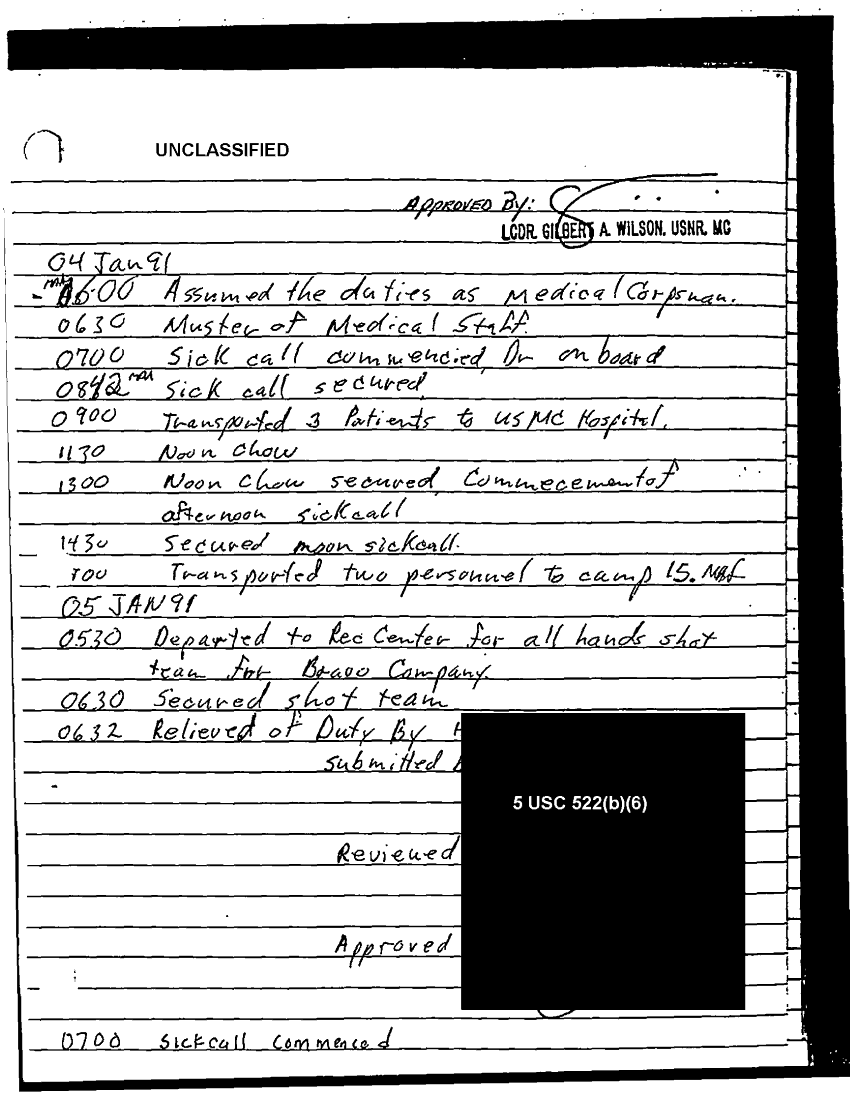 UNCLASSIFIED
APPROVED By:
LCDR. GILBERT A. WILSON, USNR, MC
04 Jan 91
0600 Assumed the duties as Medical Corpsman.
0630 Muster of Medical Staff.
0700 Sick call commencied, Dr on board
0842 Sick call secured
0900 Transported 3 Patients to USMC Hospital.
1130 Noon Chow
1300 Noon Chow secured, Commecement of
afternoon sickcall
1430 Secured sickcall.
Transported two personnel to camp 15.
05 JAN 91
0530 Departed to Rec Center for all hands shot
team for Bravo Company.
0630 Secured shot team
0632 Relieved of Duty By
submitted
5 USC 522(b)(6)
Reviewed
Approved
0700 Sickcall Commenced